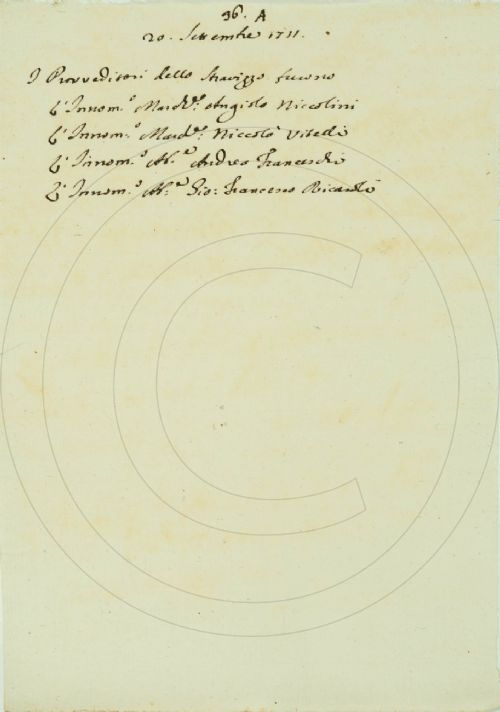 96. A
20. Settembre 1711.
I Provveditori dello Stravizzo furono
L'Innom.º March.e Angiolo Niccolini
L'Innom.º March.e Niccolò Vitelli
L'Innom.º Ab.e Andrea Franceschi
L'Innom.º Ab.e Gio: Francesco Ricasoli